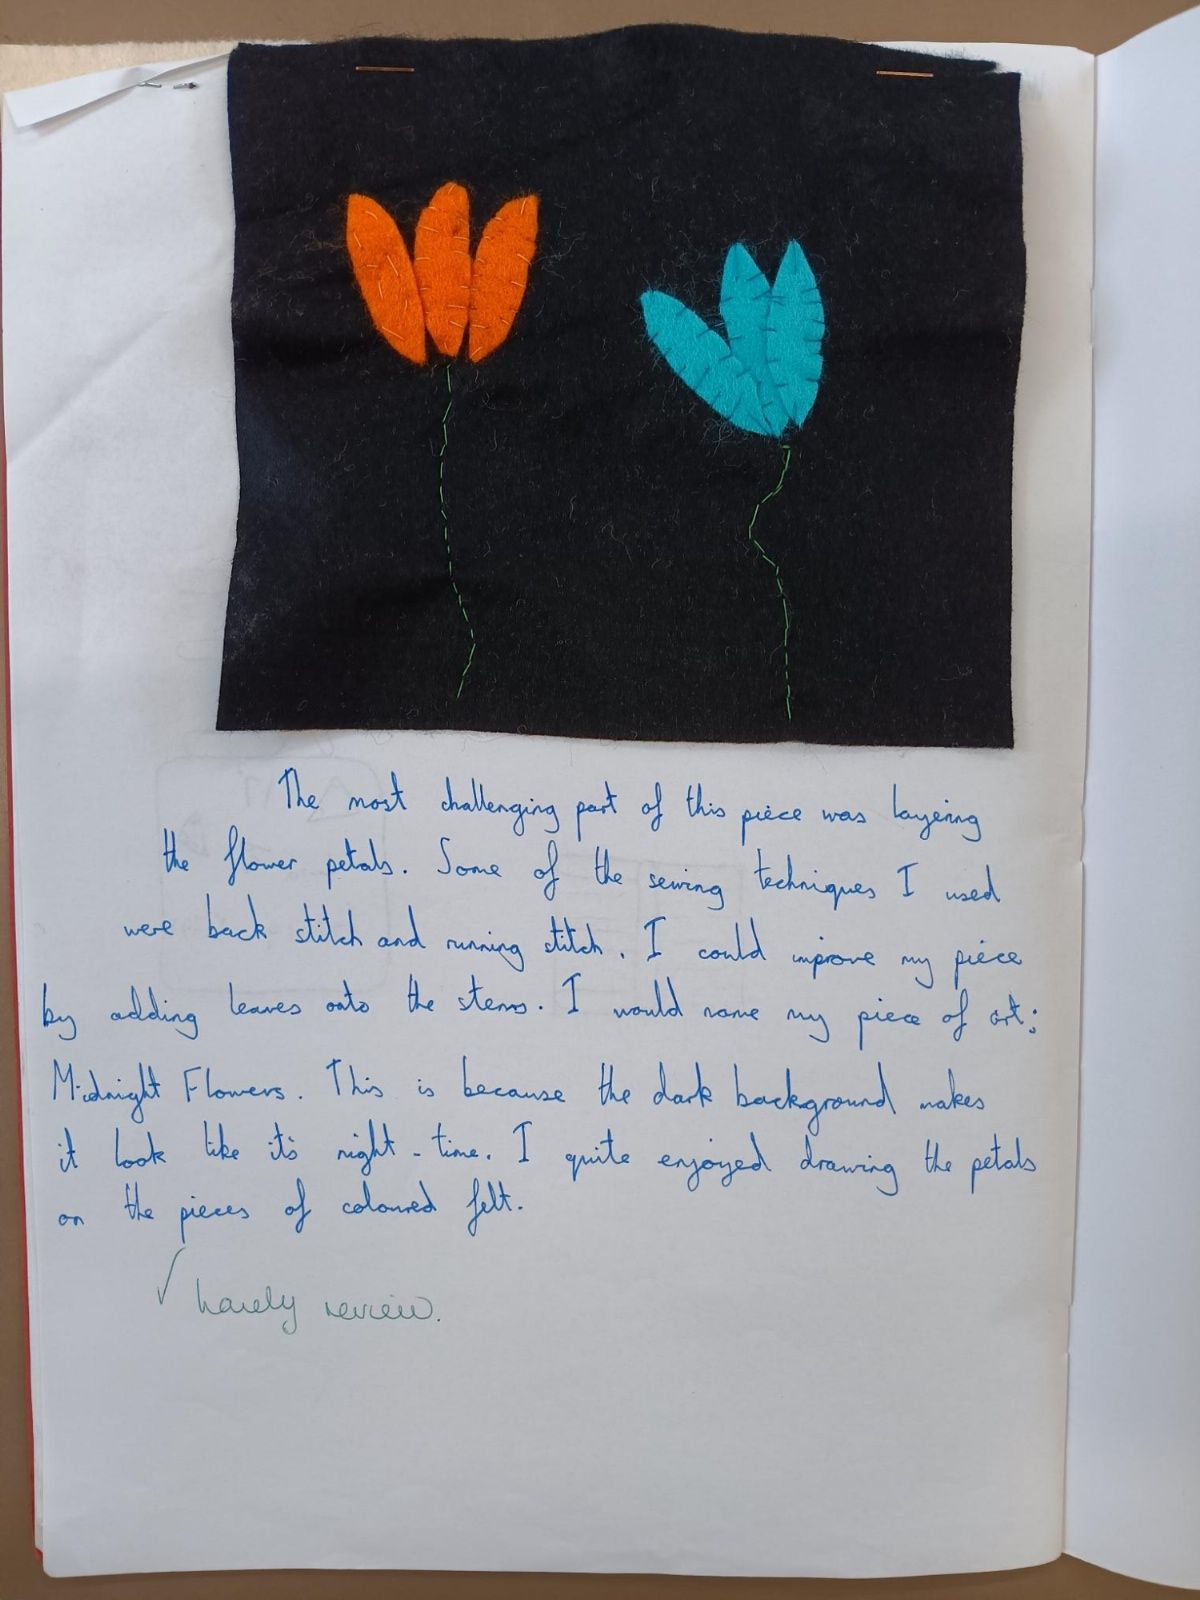 The most challenging part of this piece was layering
the flower petals. Some of the sewing techniques I used
were back stitch and running stitch. I could improve my piece
by adding leaves onto the stems. I would name my piece of art:
Midnight Flowers. This is because the dark background makes
it look like it's night-time. I quite enjoyed drawing the petals
on the pieces of coloured felt.
✓ lovely review.